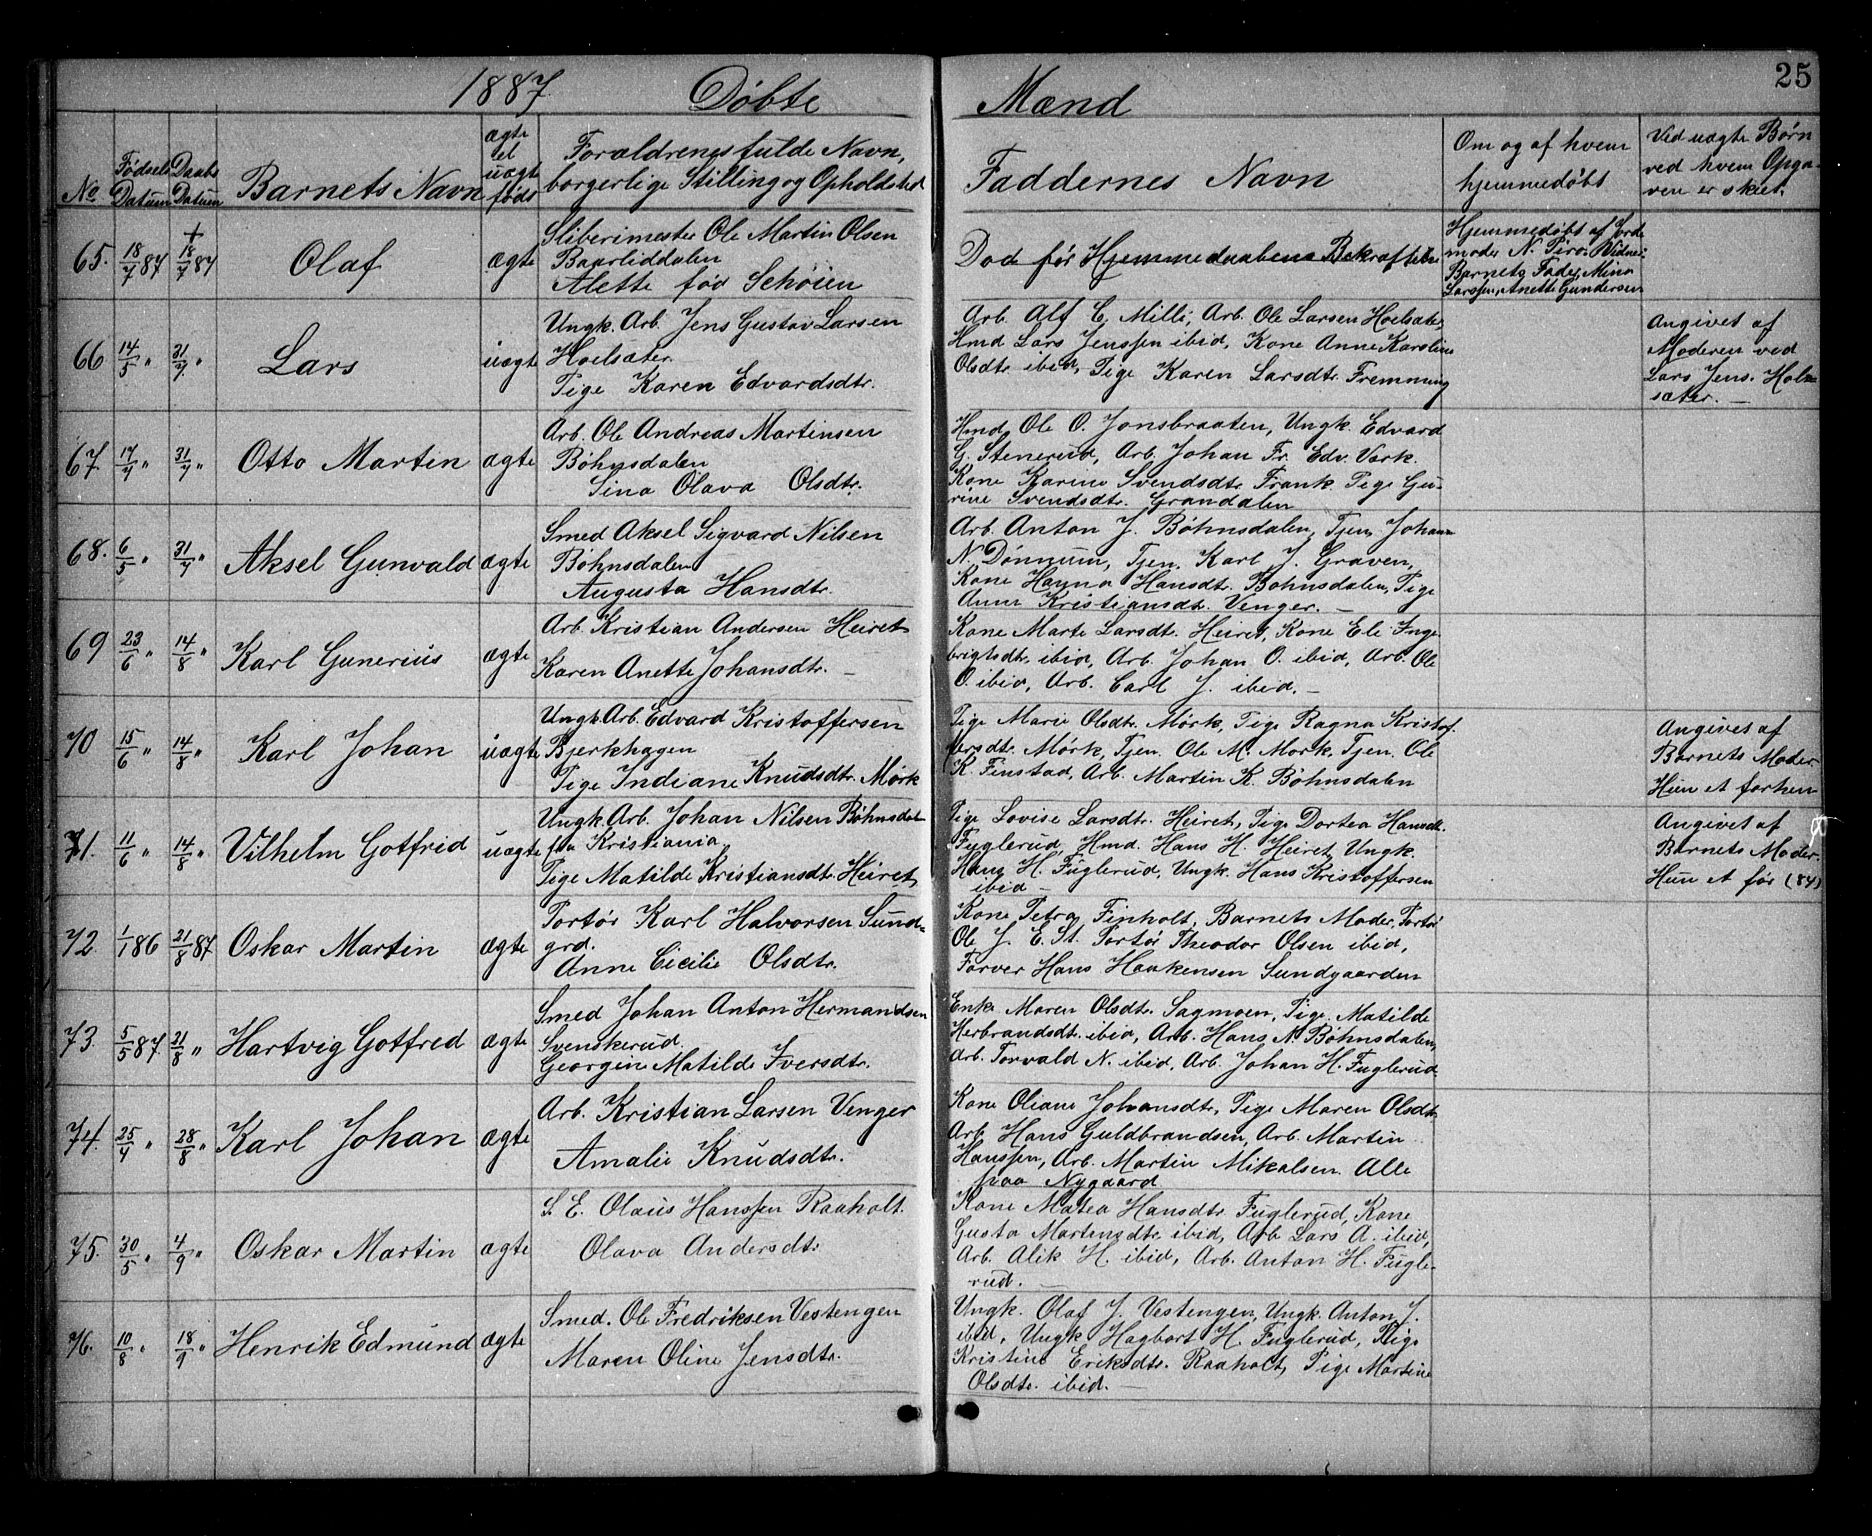 1887 Døbte Mænd 25
No Fødsels Datum Daabs Datum Barnets Navn ægte el uægte føds Forældrenes fulde Navn, borgerlige Stilling og Opholdsted Faddernes Navn Om og af hvem hjemmedøbt Ved uægte Børn ved hvem Opgaven er skeet.
65. 18/7 87 + 18/7 87 Olaf ægte
Sliberimester Ole Martin Olsen
Baarliddalen
Alette fød Schøien
Død før Hjemmedaabens Bekræftelse
Hjemmedøbt af Jorde
moder N. Piro. Vidner:
Barnets Fader, Mina
Larssen, Anette Gundersen
66 14/5 " 31/7 " Lars uægte
Ungk. Arb. Jens Gustav Larsen
Hoelsæter
Pige Karen Edvardsdtr.
Arb. Alf C. Milli, Arb. Ole Larsen Hoelsæter,
Hmd Lars Jenssen ibid, Kone Anne Karoline
Olsdtr ibid, Pige Karen Larsdtr. Fremming
Angivet af
Moderen ved
Lars Jens. Hol-
sæter. —
67. 17/7 " 31/7 " Otto Martin ægte
Arb. Ole Andreas Martinsen
Bøhnsdalen
Sina Olava Olsdtr.
Hmd Ole O. Jonsbraaten, Ungk. Edvard
G. Stenerud, Arb. Johan Fr. Edv. Værk.
Kone Karine Svendsdtr. Frank Pige Gu-
rine Svendsdtr. Grandalen
68. 6/5 " 31/7 " Aksel Gunvald ægte
Smed Aksel Sigvard Nilsen
Bøhnsdalen
Augusta Hansdtr.
Arb. Anton J. Bøhnsdalen, Tjen. Johan
N. Dønnum, Tjen. Karl J. Graven,
Kone Hanna Hansdt. Bøhnsdalen, Pige
Anne Kristiansdt. Venger. —
69 23/6 " 14/8 " Karl Gunerius ægte
Arb. Kristian Andersen Heiret
Karen Anette Johansdtr. —
Kone Marte Larsdt. Heiret, Kone Eli Inge-
brigtsdtr. ibid, Arb. Johan O. ibid, Arb. Ole
O. ibid, Arb. Carl J. ibid. —
70 15/6 " 14/8 " Karl Johan uægte
Ungk. Arb. Edvard Kristoffersen
Bjerkhagen
Pige Indiane Knudsdtr. Mørk
Pige Marie Olsdtr. Mørk, Pige Ragna Kristof-
fersdtr. Mørk, Tjen. Ole M. Mørk, Tjen. Ole
K. Finstad, Arb. Martin K. Bøhnsdalen
Angivet af
Barnets Moder
Hun et forhen
71. 11/6 " 14/8 " Vilhelm Gotfrid uægte
Ungk. Arb. Johan Nilsen Bøhnsdalen
fra Kristiania.
Pige Matilde Kristiansdtr. Heiret
Pige Lovise Larsdtr. Heiret, Pige Dortea Hansdt.
Fuglerud, Hmd. Hans H. Heiret, Ungk.
Hans H. Fuglerud, Ungk. Hans Kristoffersen
ibid —
Angivet af
Barnets Moder.
Hun et før (84)
72. 1/1 86 21/8 87 Oskar Martin ægte
Portør Karl Halvorsen Sund-
grd.
Anne Cicilie Olsdtr.
Kone Petra Finholt, Barnets Moder, Portør
Ole J. E. St. Portør Theodor Olsen ibid,
Farver Hans Haakensen Sundgaarden
73. 5/5 87. 21/8 " Hartvig Gotfred ægte
Smed Johan Anton Hermandsen
Svenskerud.
Georgine Matilde Iversdtr.
Enke Maren Olsdtr. Sagmoen, Pige Matilde
Herbrandsdt. ibid, Arb. Hans N. Bøhnsdalen,
Arb. Torvald N. ibid, Arb. Johan H. Fuglerud.
74. 25/7 " 28/8 " Karl Johan ægte
Arb. Kristian Larsen Venger
Amalie Knudsdtr.
Kone Oliane Johansdtr, Pige Maren Olsdtr,
Arb. Hans Guldbrandsen, Arb. Martin
Hanssen, Arb. Martin Mikalsen. Alle
paa Nygaard
75. 30/5 " 4/9 " Oskar Martin ægte
S. E. Olaus Hanssen Raaholt.
Olava Andersdtr
Kone Matea Hansdtr Fuglerud, Kone
Gusta Martinsdtr. ibid, Arb Lars A. ibid,
Arb. Alik H. ibid, Arb. Anton H. Fugle-
rud. —
76. 10/8 " 18/9 " Henrik Edmund ægte
Smed. Ole Fredriksen Vestengen
Maren Oline Jensdtr.
Ungk. Olaf J. Vestengen, Ungk. Anton J.
ibid, Ungk Hagbart H. Fuglerud, Pige
Kristine Eriksdtr. Raaholt, Pige Martine
Olsdtr. ibid. —